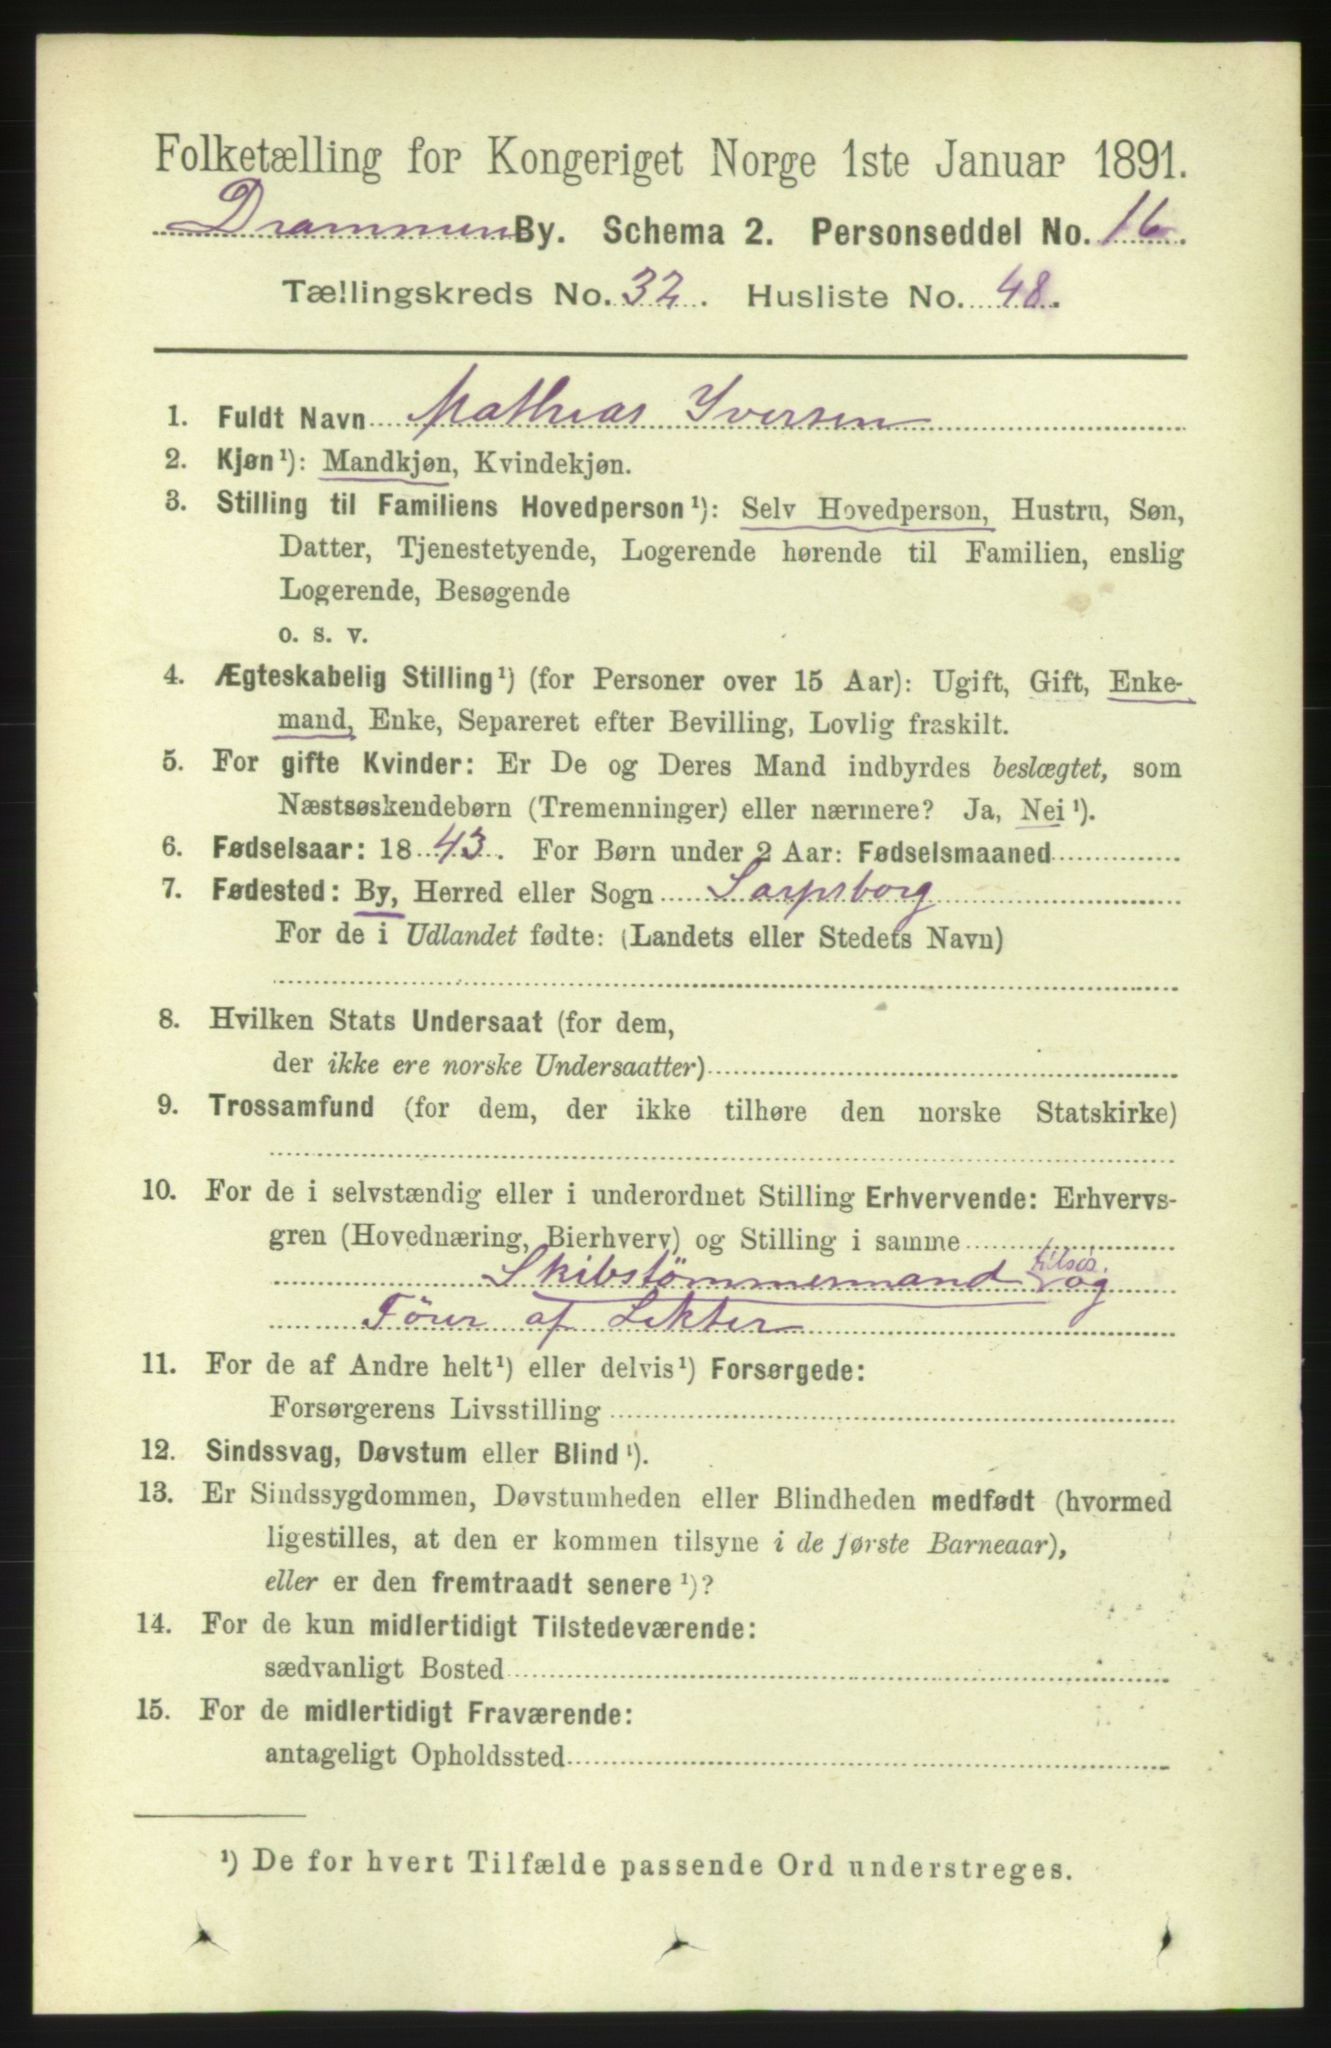 Folketælling for Kongeriget Norge 1ste Januar 1891.
Drammen By. Schema 2. Personseddel No. 16.
Tællingskreds No. 32. Husliste No. 48.
1. Fuldt Navn Mathias Iversen
2. Kjøn¹): Mandkjøn, Kvindekjøn.
3. Stilling til Familiens Hovedperson¹): Selv Hovedperson, Hustru, Søn,
Datter, Tjenestetyende, Logerende hørende til Familien, enslig
Logerende, Besøgende
o. s. v.
4. Ægteskabelig Stilling¹) (for Personer over 15 Aar): Ugift, Gift, Enke-
mand, Enke, Separeret efter Bevilling, Lovlig fraskilt.
5. For gifte Kvinder: Er De og Deres Mand indbyrdes beslægtet, som
Næstsøskendebørn (Tremenninger) eller nærmere? Ja, Nei¹).
6. Fødselsaar: 1843. For Børn under 2 Aar: Fødselsmaaned
7. Fødested: By, Herred eller Sogn Sarpsborg
For de i Udlandet fødte: (Landets eller Stedets Navn)
8. Hvilken Stats Undersaat (for dem,
der ikke ere norske Undersaatter)
9. Trossamfund (for dem, der ikke tilhøre den norske Statskirke)
10. For de i selvstændig eller i underordnet Stilling Erhvervende: Erhvervs-
gren (Hovednæring, Bierhverv) og Stilling i samme
tilsøs.
Skibstömmermand og
Förer af Lekter
11. For de af Andre helt¹) eller delvis¹) Forsørgede:
Forsørgerens Livsstilling
12. Sindssvag, Døvstum eller Blind¹).
13. Er Sindssygdommen, Døvstumheden eller Blindheden medfødt (hvormed
ligestilles, at den er kommen tilsyne i de første Barneaar),
eller er den fremtraadt senere¹)?
14. For de kun midlertidigt Tilstedeværende:
sædvanligt Bosted
15. For de midlertidigt Fraværende:
antageligt Opholdssted
¹) De for hvert Tilfælde passende Ord understreges.